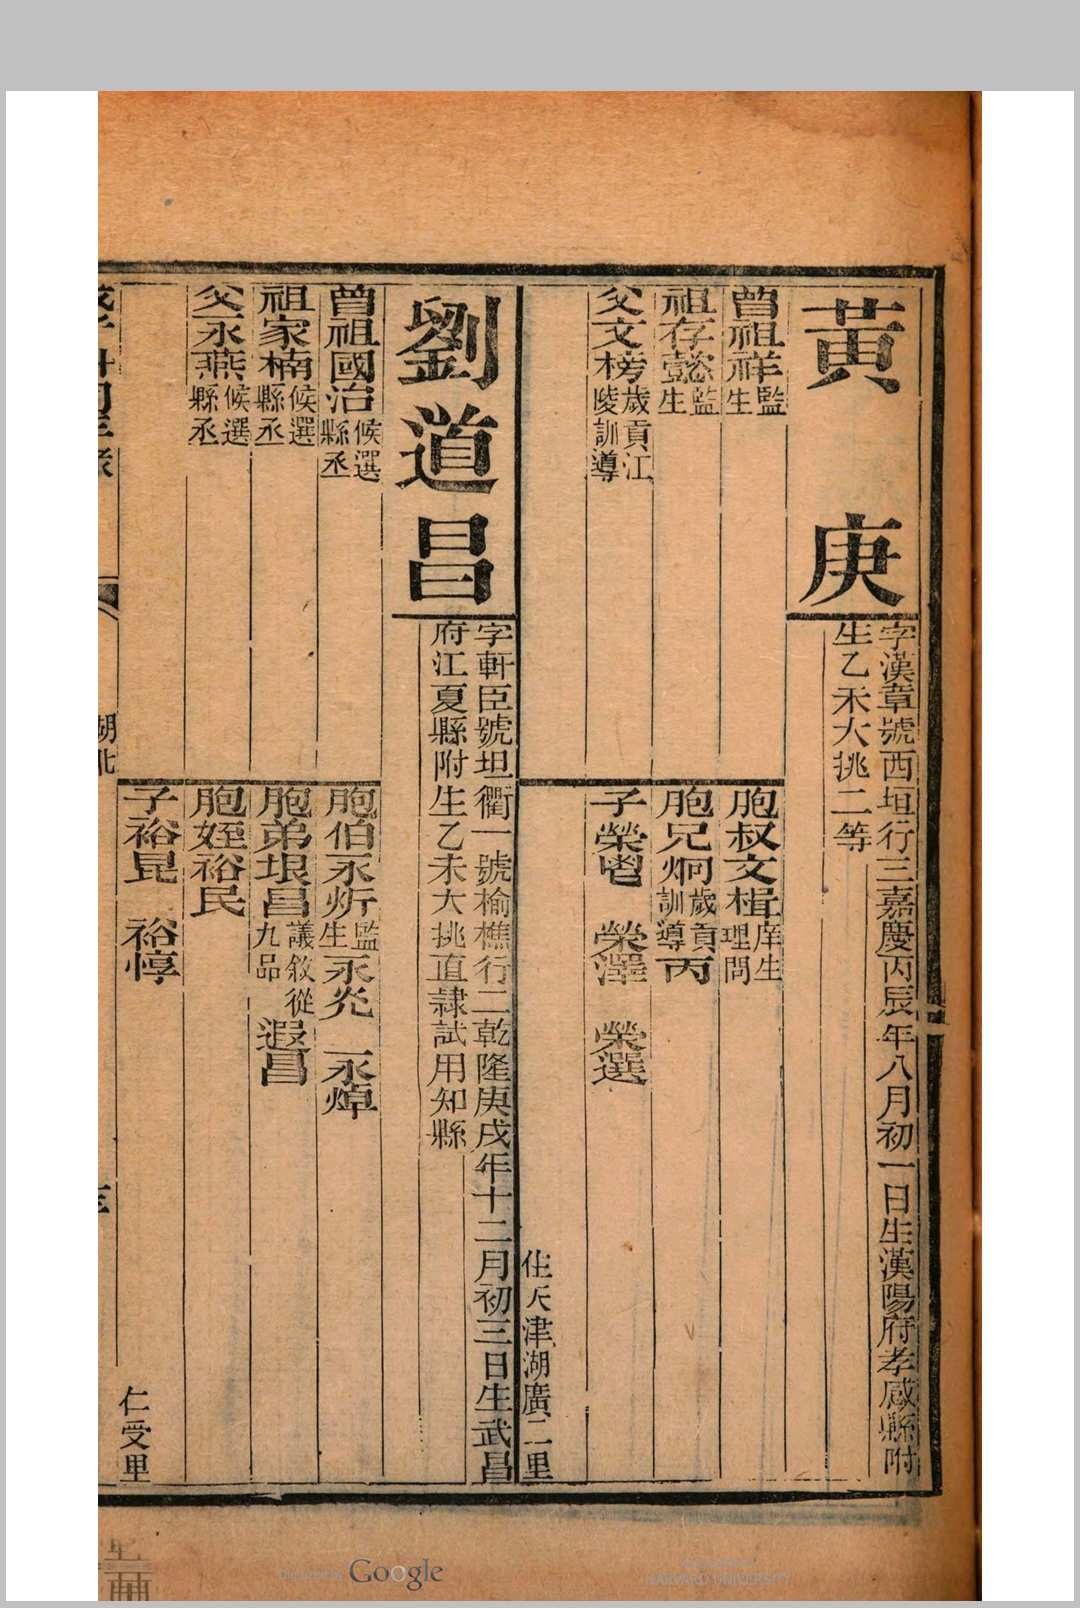 黃庚
字漢章號西垣行三嘉慶丙辰年八月初一日生漢陽府孝感縣附
生乙未大挑二等
曾祖祥監生
祖存懿監生
父文榜歲貢江陵訓導
胞叔文楫庠生理問
胞兄炯歲貢訓導丙
子榮鬯 榮澤 榮選
住天津湖廣二里
劉道昌
字軒臣號坦衢一號榆樵行二乾隆庚戌年十二月初三日生武昌
府江夏縣附生乙未大挑直隸試用知縣
曾祖國治候選縣丞
祖家楠候選縣丞
父永燕候選縣丞
胞伯永炘監生永炎 永焯
胞弟垠昌議敘從九品遐昌
胞姪裕民
子裕昆 裕惇
仁受里
湖北
Google